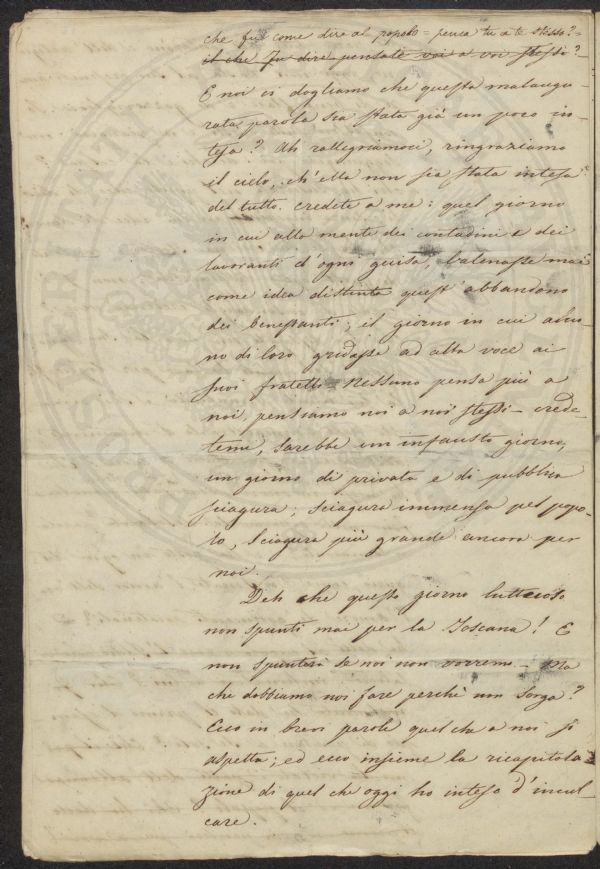 che fu come dire al popolo = pensa tu a te stesso? =
il che fu dire pensate voi a voi stessi?
E noi ci dogliamo che questa malaugu-
rata parola sia stata già un poco in-
tesa? Ah rallegriamoci, ringraziamo
il cielo, ch'ella non sia stata intesa
del tutto. Credete a me: quel giorno
in cui alla mente dei contadini e dei
lavoranti d'ogni guisa, balenasse mai
come idea distinta quest'abbandono
dei benestanti; il giorno in cui alcu-
no di loro gridasse ad alta voce ai
suoi fratelli - Nessuno pensa più a
noi, pensiamo noi a noi stessi - crede-
temi, sarebbe un infausto giorno,
un giorno di privata e di pubblica
sciagura; sciagura immensa pel popo-
lo, sciagura più grande ancora per
noi.
Deh che questo giorno luttuoso
non spunti mai per la Toscana! E
non spunterà se noi non vorremo. - Ma
che dobbiamo noi fare perchè non sorga?
Ecco in brevi parole quel che a noi si
aspetta; ed ecco insieme la ricapitola
zione di quel che oggi ho inteso d'incul
care.